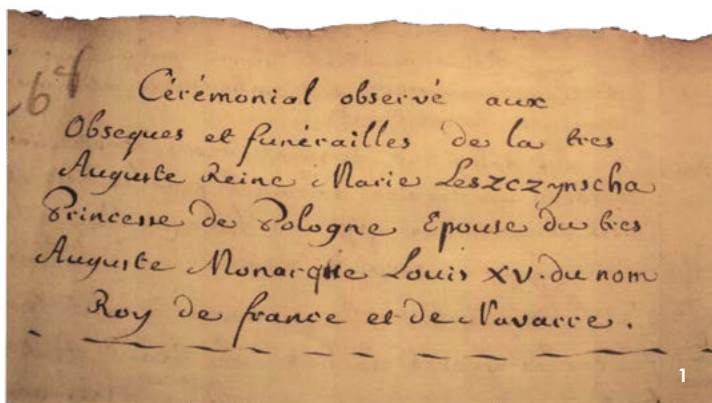 Cérémonial observé aux
Obseques et funérailles de la tres
Auguste Reine Marie Leszczynscha
Princesse de Pologne Epouse du tres
Auguste Monarque Louis XV. du nom
Roy de france et de Navarre.
1